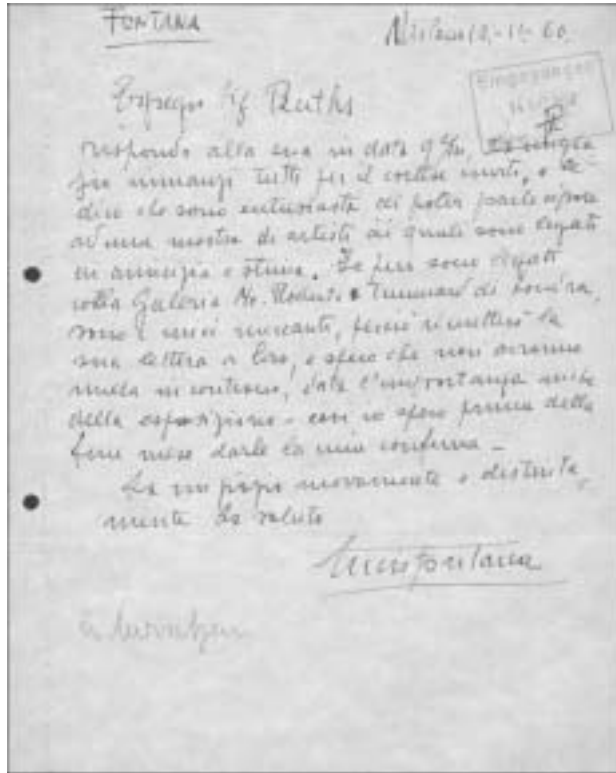 FONTANA
Milano 12-11-60
Egregio Sig Ruths
Eingegangen
rispondo alla sua in data 9 la ringra
zio innanzi tutto per il cortese invito, e le
dico che sono entusiasta di poter partecipare
ad una mostra di artisti ai quali sono legato
in amicizia e stima. Io però sono legato
colla Galeria Mc. Roberts e Tunnard di Londra,
sono i miei mercanti, perciò rimetterò la
sua lettera a loro, e spero che non avranno
nulla in contrario, data l'importanza anche
della esposizione - così io spero prima della
fine mese darle la mia conferma -
La ringrazio novamente e distinta
mente la saluto
Lucio Fontana